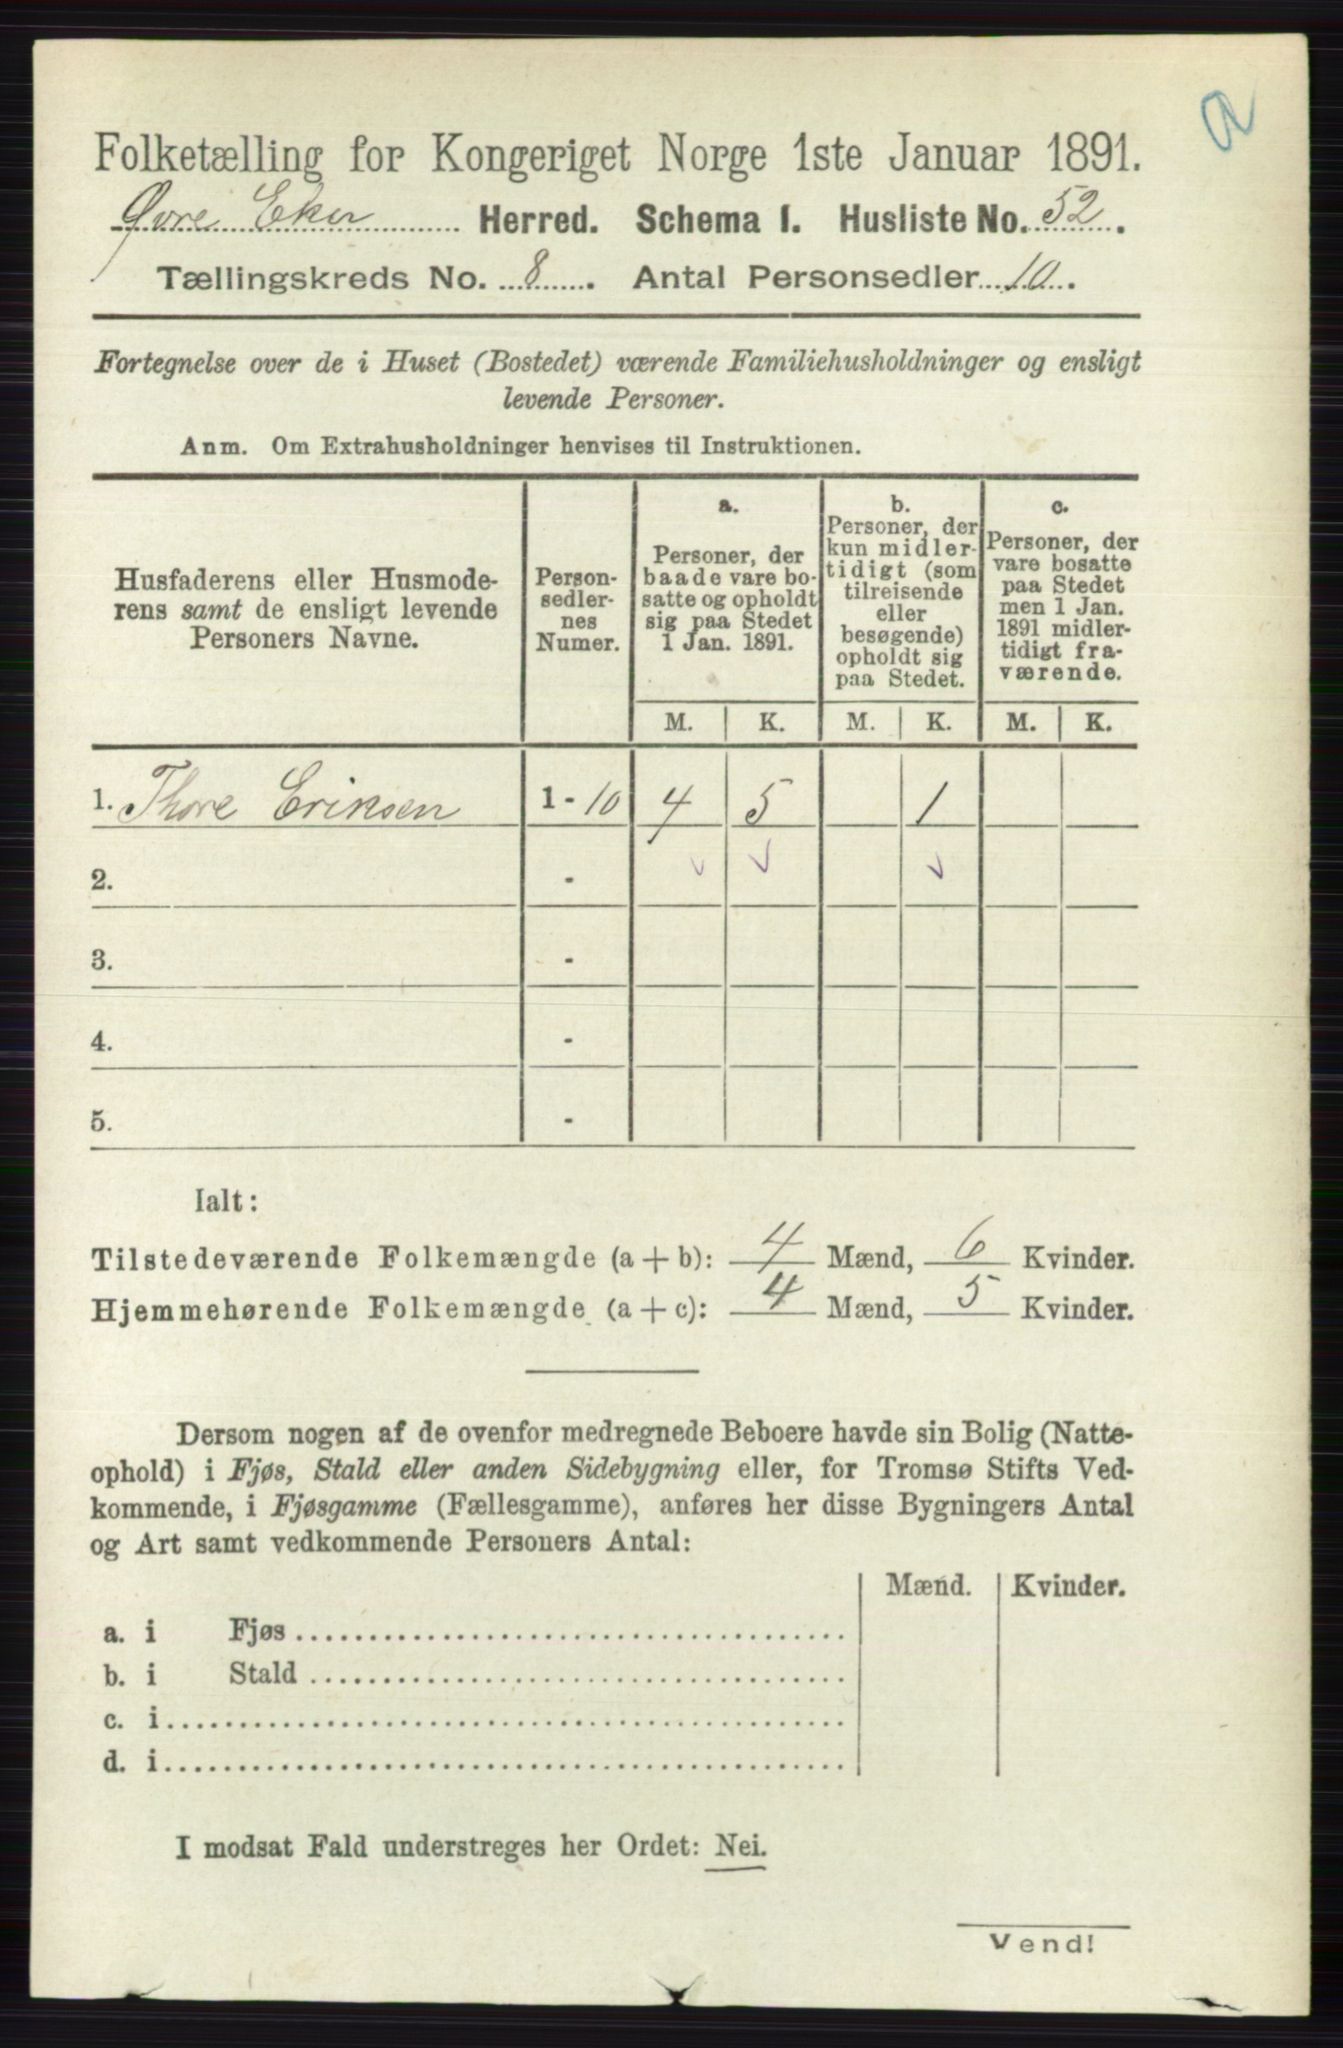 a
Folketælling for Kongeriget Norge 1ste Januar 1891.
Øvre Eker Herred. Schema I. Husliste No. 52.
Tællingskreds No. 8. Antal Personsedler 10.
Fortegnelse over de i Huset (Bostedet) værende Familiehusholdninger og ensligt
levende Personer.
Anm. Om Extrahusholdninger henvises til Instruktionen.
Husfaderens eller Husmode-
rens samt de ensligt levende
Personers Navne.
Person-
sedler-
nes
Numer.
a.
Personer, der
baade vare bo-
satte og opholdt
sig paa Stedet
1 Jan. 1891.
b.
Personer, der
kun midler-
tidigt (som
tilreisende
eller
besøgende)
opholdt sig
paa Stedet.
c.
Personer, der
vare bosatte
paa Stedet
men 1 Jan.
1891 midler-
tidigt fra-
værende.
M. K. M. K. M. K.
1. Thore Eriksen 1 - 10 4 5 1
2. -
3. -
4. -
5. -
Ialt:
Tilstedeværende Folkemængde (a + b): 4 Mænd, 6 Kvinder.
Hjemmehørende Folkemængde (a + c): 4 Mænd, 5 Kvinder.
Dersom nogen af de ovenfor medregnede Beboere havde sin Bolig (Natte-
ophold) i Fjøs, Stald eller anden Sidebygning eller, for Tromsø Stifts Ved-
kommende, i Fjøsgamme (Fællesgamme), anføres her disse Bygningers Antal
og Art samt vedkommende Personers Antal:
Mænd. Kvinder.
a. i Fjøs
b. i Stald
c. i
d. i
I modsat Fald understreges her Ordet: Nei.
Vend!